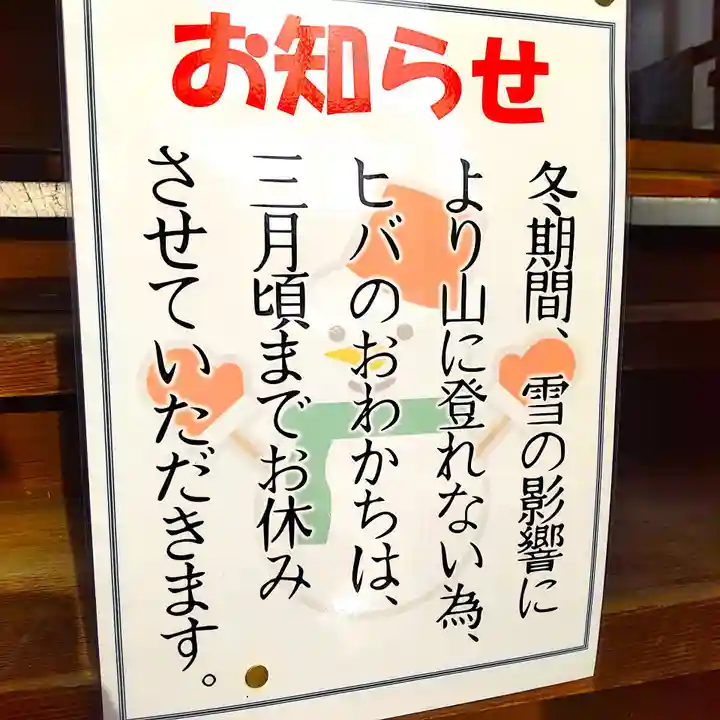 お知らせ
冬期間、雪の影響に
より山に登れない為、
ヒバのおわかちは、
三月頃までお休み
させていただきます。